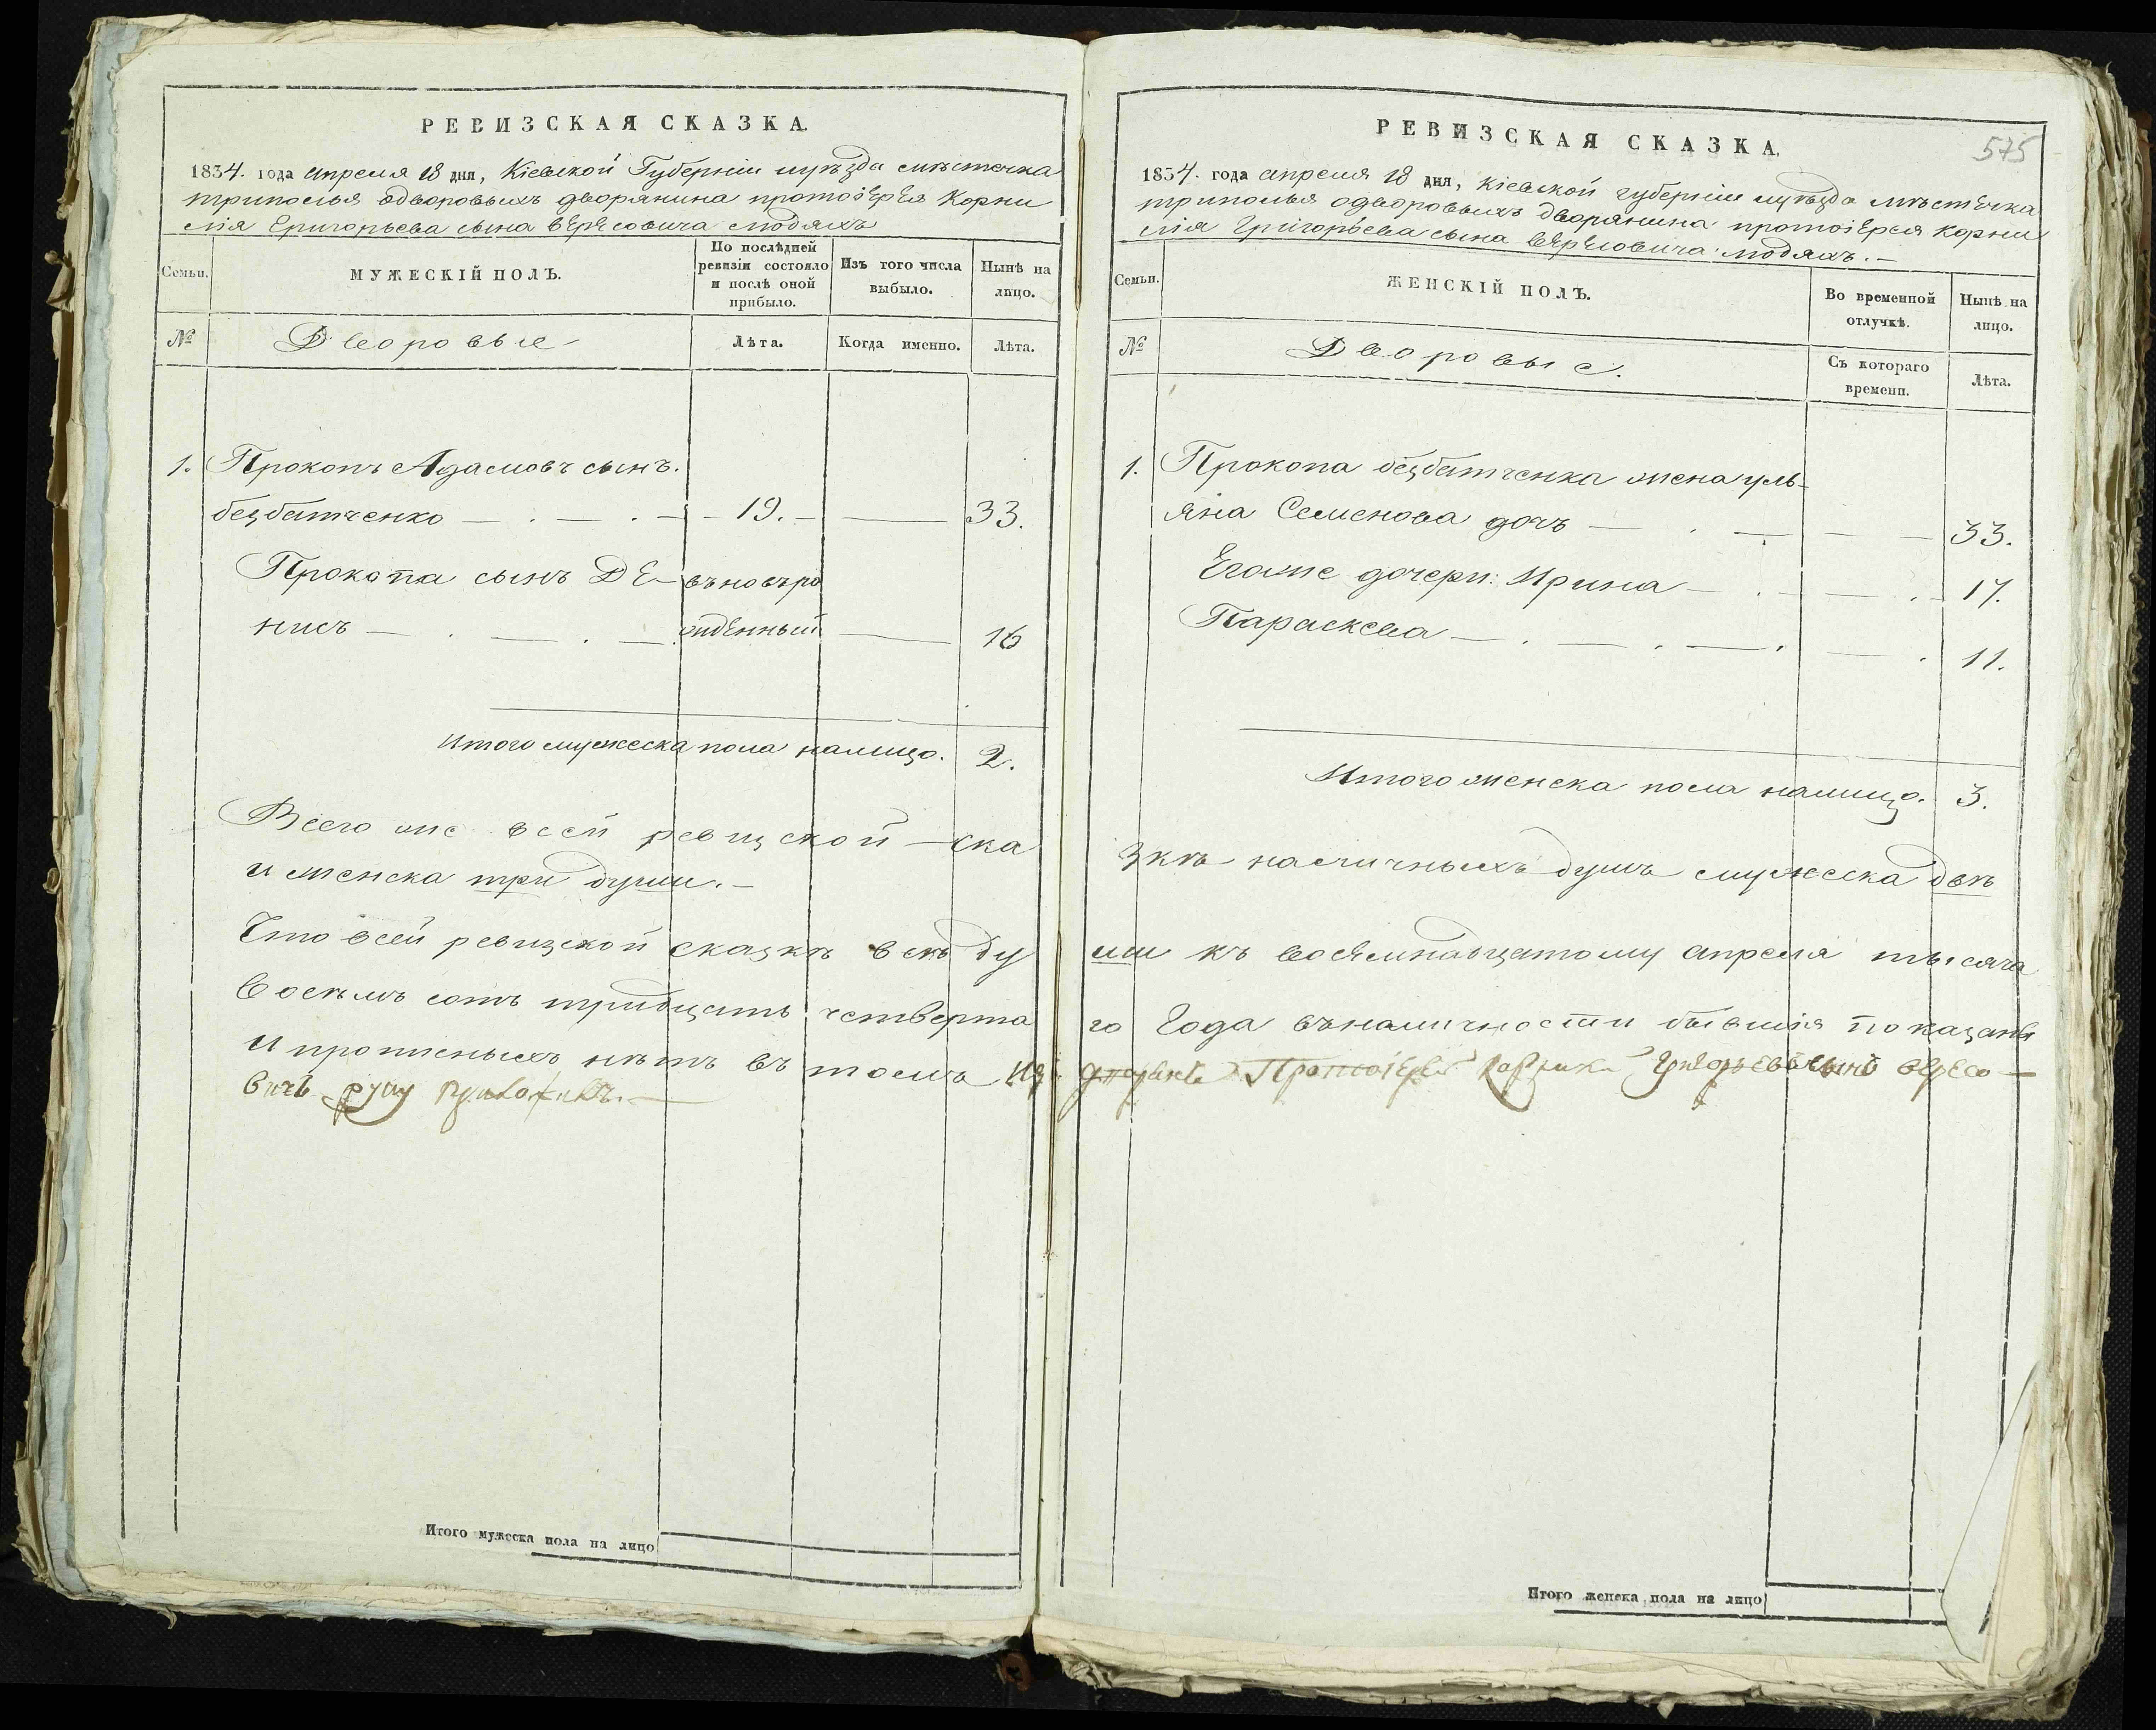 РЕВИЗСКАЯ СКАЗКА.
1834. года апреля 18 дня, Кіевской Губерніи иуѣзда мѣстечка
триполья одворовыхъ дворянина протоіерея Корни
лія Григорьева сына верѣсовича людяхъ
Семьи.
МУЖЕСКІЙ ПОЛЪ.
По послѣдней ревизіи состояло и послѣ оной прибыло.
Изъ того числа выбыло.
Нынѣ на лицо.
№
Дворовые
Лѣта.
Когда именно.
Лѣта.
1. Прокопъ Адамовъ сынъ.
безбатченко — . — . — 19. — — 33.
Прокопа сынъ Де- въновъро
нисъ — . — . — жденный — 16
Итого мужеска пола налицо. 2.
Всего же всей ревизской ска
и женска три души. —
Что всей ревизской сказкѣ всѣ ду
восѣмъ сотъ тридцать четверта
и прописныхъ нѣтъ въ томъ
вичъ руку приложилъ. —
Итого мужеска пола на лицо
575
РЕВИЗСКАЯ СКАЗКА.
1834. года апреля 18 дня, Кіевской губерніи иуѣзда мѣстечка
триполья одворовыхъ дворянина протоіерея Корни
лія Григорьева сына верѣсовича людяхъ. —
Семьи.
ЖЕНСКІЙ ПОЛЪ.
Во временной отлучкѣ.
Нынѣ на лицо.
№
Дворовые.
Съ котораго времени.
Лѣта.
1. Прокопа безбатченка жена уль-
яна Семенова дочъ — . — — — 33.
Егоже дочери: Ирина — . — — . — 17.
Параскева — . — . — . — . 11.
Итого женска пола налицо. 3.
зкѣ наличныхъ душъ мужеска двѣ
ши къ восемнадцатому апреля тысяча
го Года въналичности бывшія показаны
Протоіерей Григорьевъ сынъ вересо —
Итого женска пола на лицо